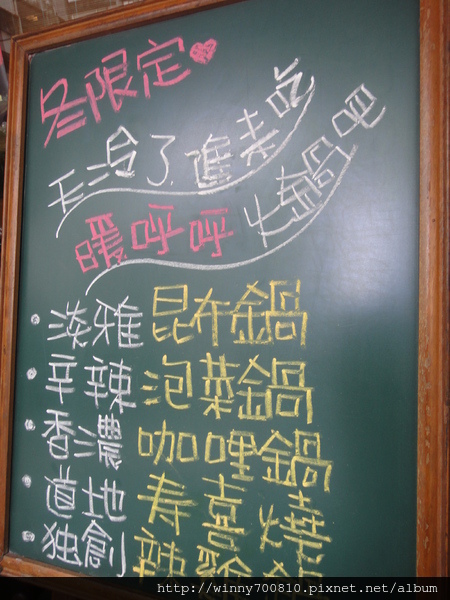 冬限定
天冷了,進來吃
暖呼呼火鍋吧
淡雅昆布鍋
辛辣泡菜鍋
香濃咖哩鍋
道地寿喜燒
独創辣
http://winny700810.pixnet.net/album